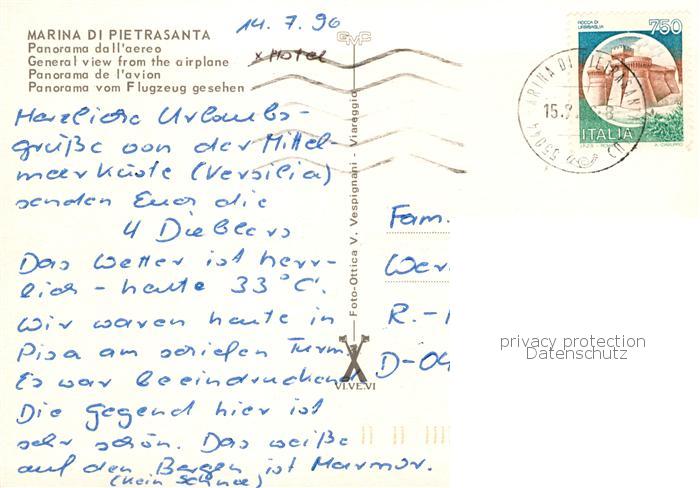 MARINA DI PIETRASANTA
Panorama dall'aereo
General view from the airplane
Panorama de l'avion
Panorama vom Flugzeug gesehen
14. 7. 96
x Hotel
GMC
Herzliche Urlaubs-
grüße von der Mittel-
meerküste (Versilia)
senden Euch die
4 Dieblers
Das Wetter ist herr-
lich - heute 33°C.
Wir waren heute in
Pisa am schiefen Turm.
Es war beeindruckend
Die Gegend hier ist
sehr schön. Das weiße
auf den Bergen ist Marmor.
(kein Schnee)
Foto-Ottica V. Vespignani - Viareggio
VI.VE.VI
ROCCA DI URBISAGLIA
750
ITALIA
55044 MARINA DI PIETRASANTA LU
15.
8
Fam.
Wer
R.-
D-04
privacy protection
Datenschutz